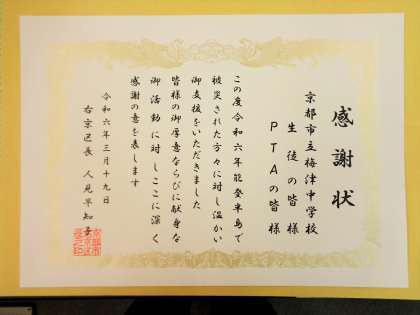 感謝状
京都市立梅津中学校
生徒の皆様
PTAの皆様
この度令和六年能登半島で
被災された方々に対し温かい
御支援をいただきました
皆様の御厚意ならびに献身な
御活動に対しここに深く
感謝の意を表します
令和六年三月十九日
右京区長 人見早知子